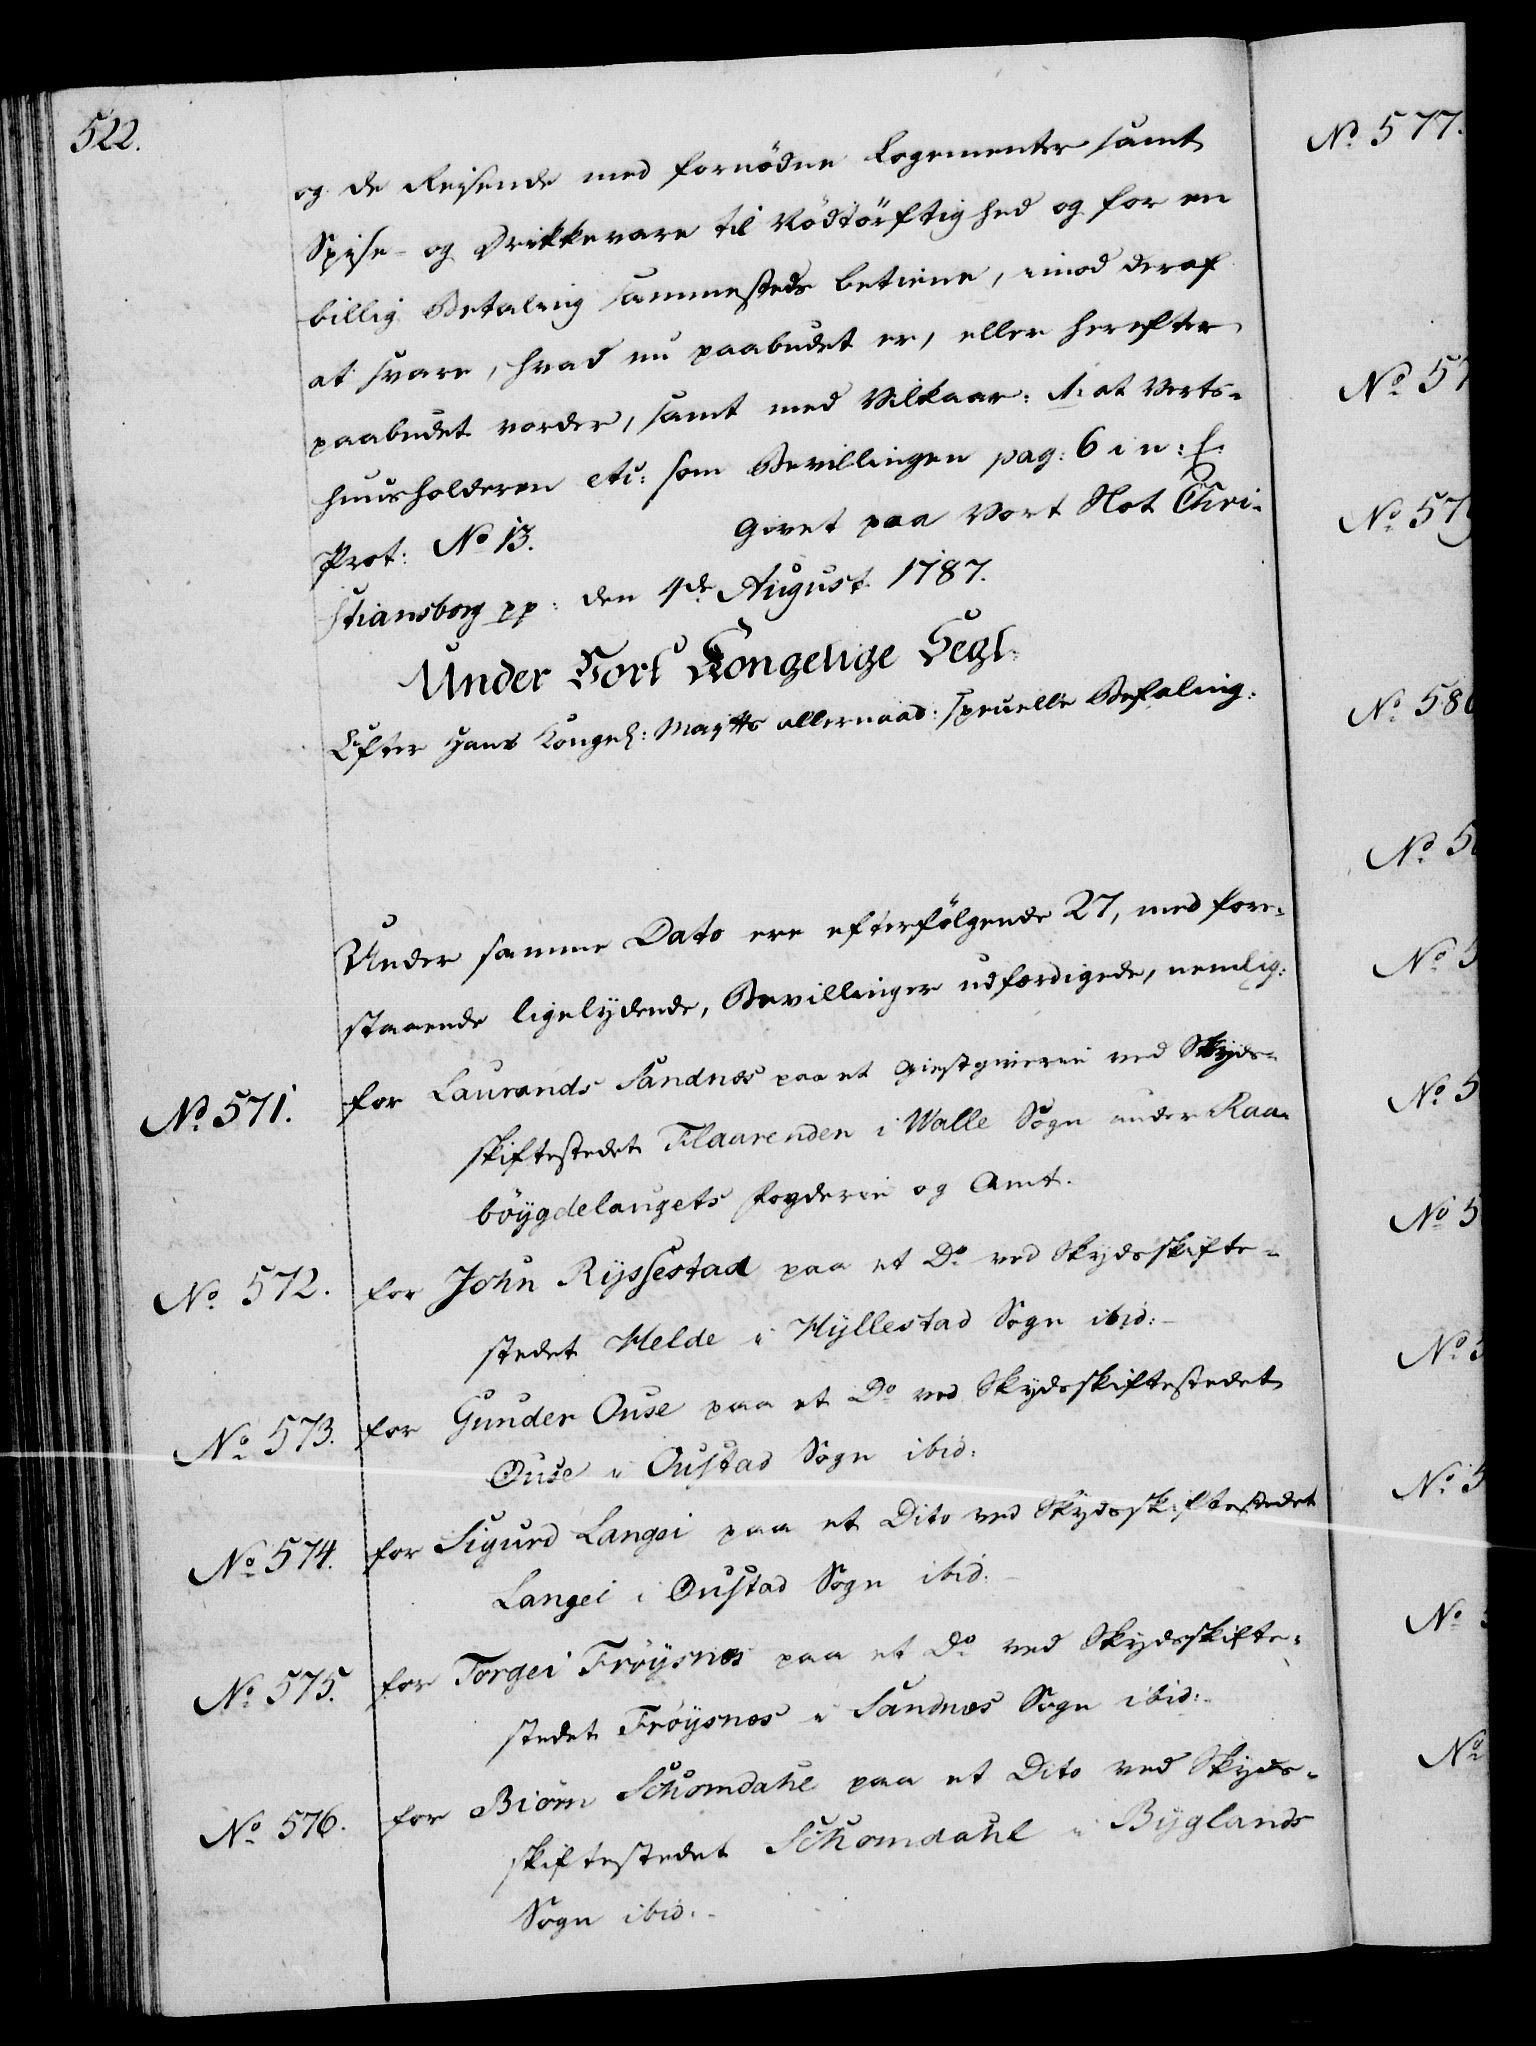 522.
og de Reisende med fornödne Logementer samt
Spise- og Drikkevare til Nödtörftighed og for en
billig Betaling sammesteds betiene, imod deraf
at svare, hvad nu paabudet er, eller herefter
paabudet vorder, samt med Vilkaar: 1, at Verts-
huusholderen etc: som Bevillingen pag: 6 i n:
Prot: No 13. Givet paa Vort Slot Chri-
stiansborg pp: den 4de August 1787.
Under Vort Kongelige Segl.
Efter Hans Kongel: Maytts allernaad: specielle Befaling.
Under samme Dato ere efterfölgende 27, med fore-
staaende ligelydende, Bevillinger udfærdigede, nemlig:
No 571. for Laurands Sandnæs paa et Giestgiverie ved Skyds-
skiftestedet Flaarenden i Walle Sogn under Raa-
böygdelaugets Fogderie og Amt.
No 572. for John Ryssestad paa et Do ved Skydsskifte-
stedet Helde i Hyllestad Sogn ibid:
No 573. for Gunder Ouse paa et Do ved Skydsskiftestedet
Ouse i Oustad Sogn ibid:
No 574. for Sigurd Langei paa et Dito ved Skydsskiftestedet
Langei i Oustad Sogn ibid.
No 575. for Torgei Fröysnæs paa et Do ved Skydsskifte-
stedet Fröysnæs i Sandnæs Sogn ibid:
No 576. for Biörn Schomdahl paa et Dito ved Skyds-
skiftestedet Schomdahl i Byglands
Sogn ibid.
No 577.